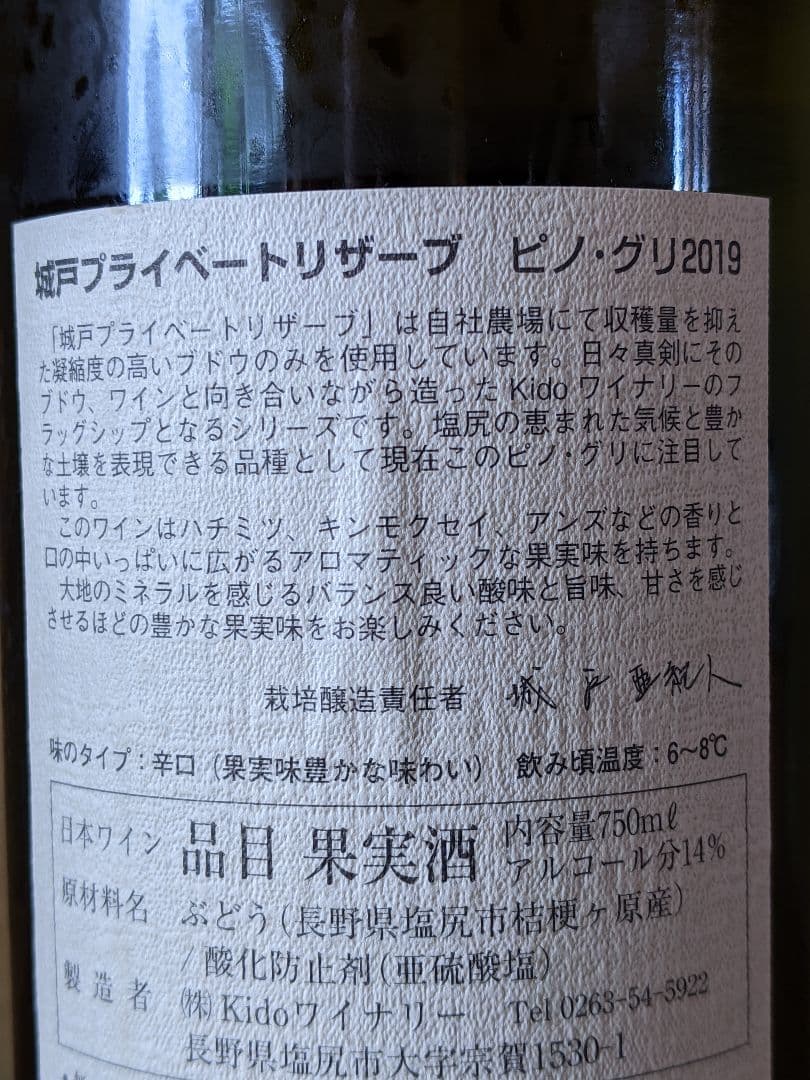 城戸プライベートリザーブ ピノ・グリ2019
「城戸プライベートリザーブ」は自社農場にて収穫量を抑え
た凝縮度の高いブドウのみを使用しています。日々真剣にその
ブドウ、ワインと向き合いながら造ったKidoワイナリーのフ
ラッグシップとなるシリーズです。塩尻の恵まれた気候と豊か
な土壌を表現できる品種として現在このピノ・グリに注目して
います。
このワインはハチミツ、キンモクセイ、アンズなどの香りと
口の中いっぱいに広がるアロマティックな果実味を持ちます。
大地のミネラルを感じるバランス良い酸味と旨味、甘さを感じ
させるほどの豊かな果実味をお楽しみください。
栽培醸造責任者 城戸亜紀人
味のタイプ:辛口(果実味豊かな味わい) 飲み頃温度:6~8℃
日本ワイン 品目 果実酒 内容量750mℓ
アルコール分14%
原材料名 ぶどう(長野県塩尻市桔梗ヶ原産)
/酸化防止剤(亜硫酸塩)
製造者 ㈱Kidoワイナリー Tel 0263-54-5922
長野県塩尻市大字宗賀1530-1